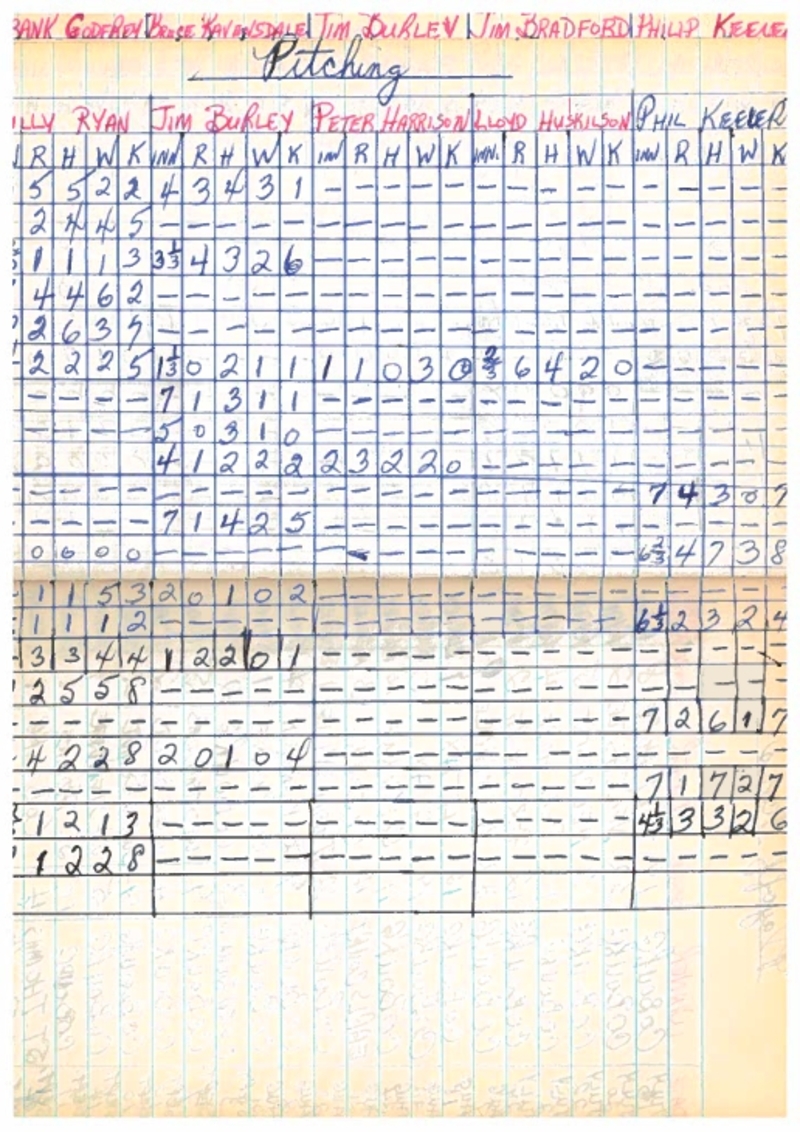 BANK GODFREY BRUCE RAVENSDALE JIM BURLEY JIM BRADFORD PHILIP KEELE
Pitching
ILLY RYAN JIM BURLEY PETER HARRISON LLOYD HUSKILSON PHIL KEELER
R H W K INN R H W K INN R H W K INN. R H W K INN R H W K
5 5 2 2 4 3 4 3 1 - - - - - - - - - - - - - - -
2 4 4 5 - - - - - - - - - - - - - - - - - - - -
1 1 1 3 3⅓ 4 3 2 6 - - - - - - - - - - - - - - -
4 4 6 2 - - - - - - - - - - - - - - - - - - - -
2 6 3 7 - - - - - - - - - - - - - - - - - - - -
2 2 2 5 1⅓ 0 2 1 1 1 1 0 3 0 ⅔ 6 4 2 0 - - - - -
- - - - 7 1 3 1 1 - - - - - - - - - - - - - - -
5 0 3 1 0 - - - - - - - - - - - - - - -
4 1 2 2 2 2 3 2 2 0 - - - - - - - - - -
- - - - - - - - - - - - - - - - - - - 7 4 3 0 7
- - - - 7 1 4 2 5 - - - - - - - - - - - - - - -
0 0 0 0 - - - - - - - - - - - - - - - 6⅔ 4 7 3 8
1 1 5 3 2 0 1 0 2 - - - - - - - - - - - - - - -
1 1 1 2 - - - - - - - - - - - - - - - 6⅓ 2 3 2 4
3 3 4 4 1 2 2 0 1 - - - - - - - - - - - - - - -
2 5 5 8 - - - - - - - - - - - - - - - - - - - -
- - - - - - - - - - - - - - - - - - - 7 2 6 1 7
4 2 2 8 2 0 1 0 4 - - - - - - - - - - - - - - -
- - - - - - - - - - - - - - - - - - - 7 1 7 2 7
1 2 1 3 - - - - - - - - - - - - - - - 4⅓ 3 3 2 6
1 2 2 8 - - - - - - - - - - - - - - - - - - - -